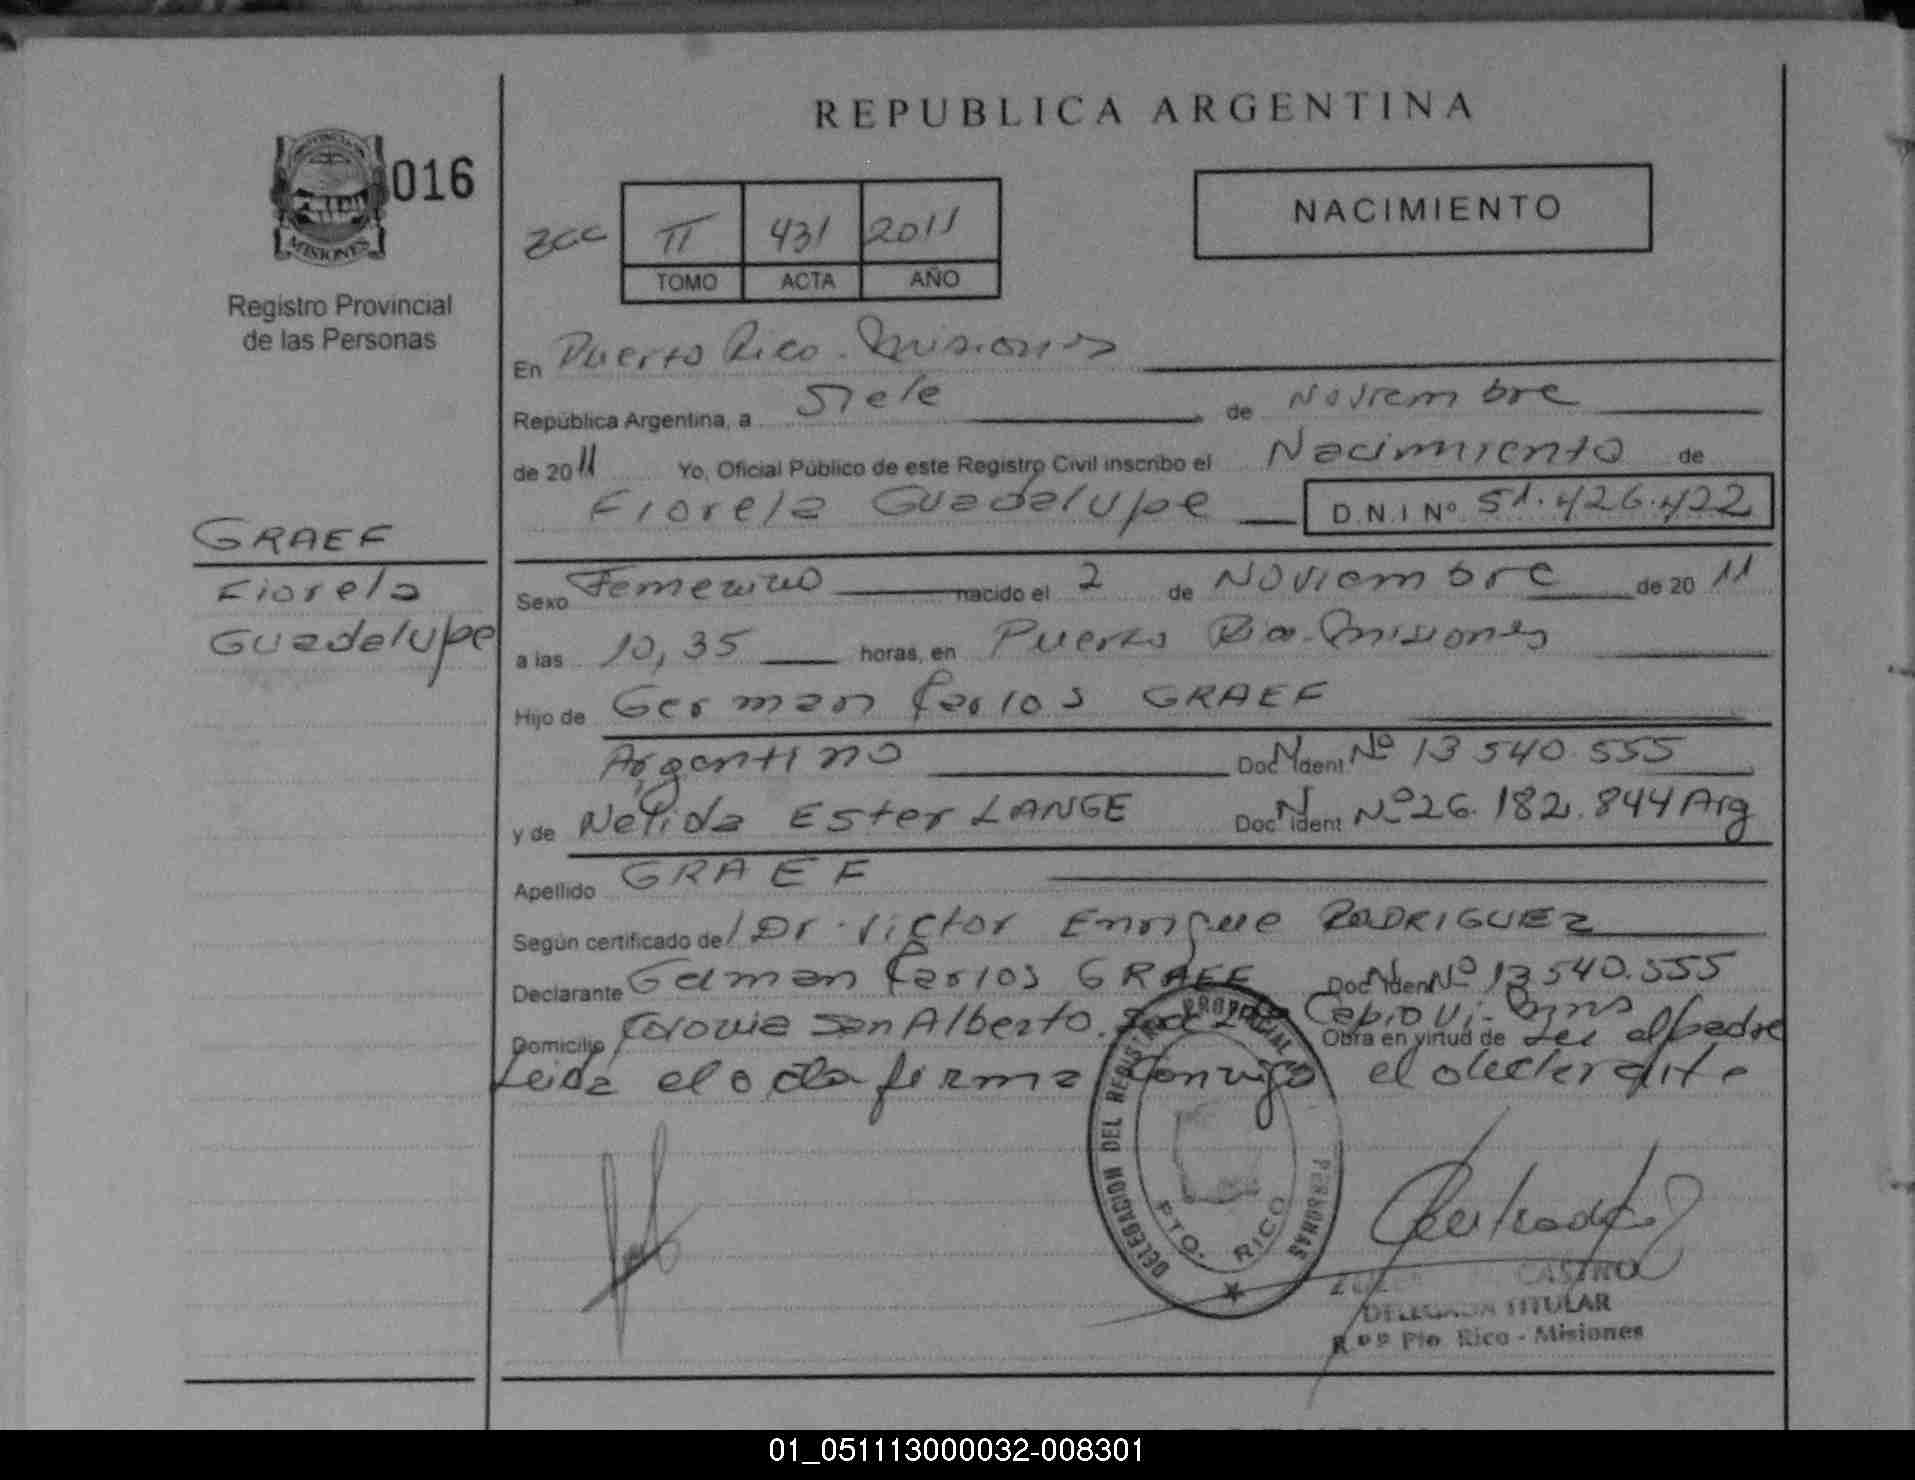 REPUBLICA ARGENTINA
PROVINCIA DE
MISIONES
016
Registro Provincial
de las Personas
II 431 2011
TOMO ACTA AÑO
NACIMIENTO
En Puerto Rico - Misiones
República Argentina, a Siete de Noviembre
de 2011 Yo, Oficial Público de este Registro Civil inscribo el Nacimiento de
Fiorela Guadalupe D.N.I Nº 51.426.422
GRAEF
Fiorela
Guadalupe
Sexo Femenino nacido el 2 de Noviembre de 2011
a las 10,35 horas, en Puerto Rico - Misiones
Hijo de German Carlos GRAEF
Argentino Doc Ident Nº 13 540.555
y de Nelida Ester LANGE Doc Ident Nº 26.182.844 Arg
Apellido GRAEF
Según certificado de Dr. Victor Enrique RODRIGUEZ
Declarante German Carlos GRAEF Doc Iden Nº 13 540.555
Domicilio Colonia San Alberto. Capiovi - Mnes
Obra en virtud de ser el padre
Leida el acta firma conmigo el declarante
DELEGACION DEL REGISTRO PROVINCIAL PERSONAS
PTO. RICO
CASTRO
DELEGADA TITULAR
R.P.P Pto. Rico - Misiones
01_051113000032-008301